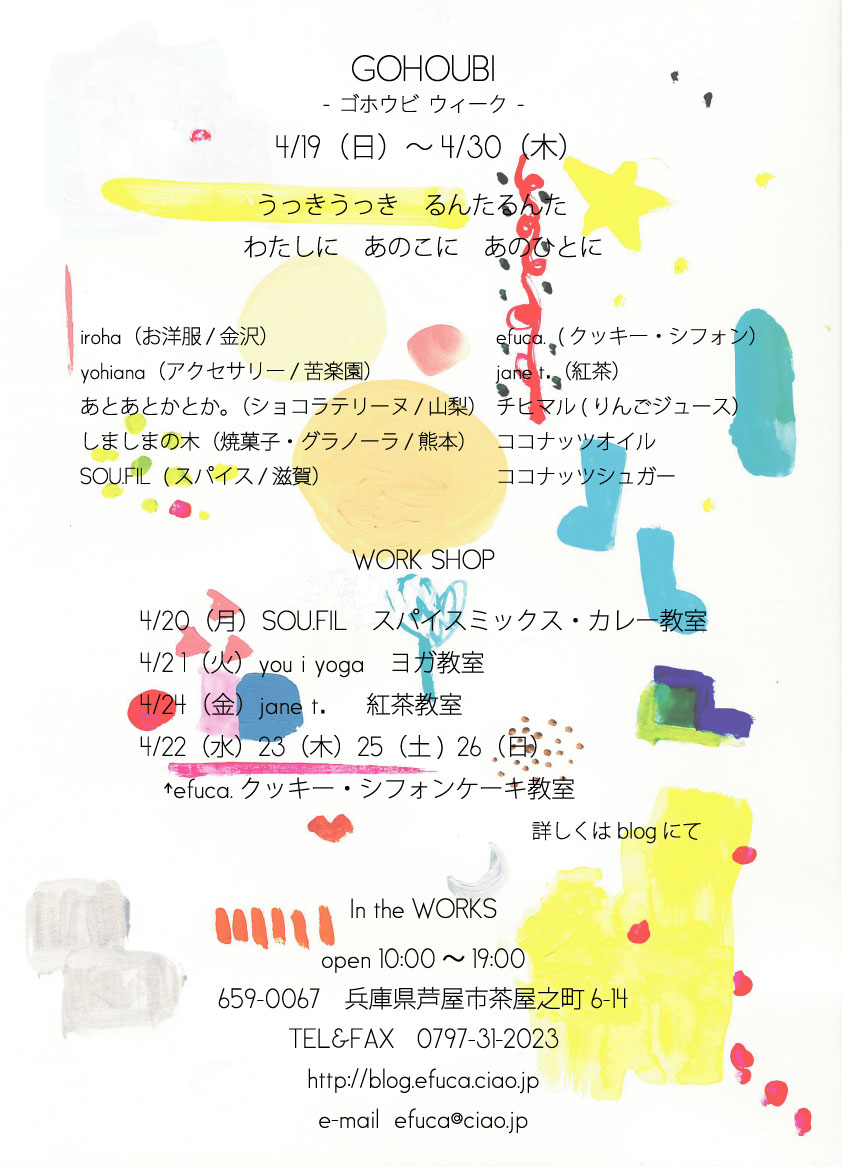 GOHOUBI
- ゴホウビ ウィーク -
4/19（日）～4/30（木）
うっきうっき　るんたるんた
わたしに　あのこに　あのひとに
iroha（お洋服 / 金沢）
yohiana（アクセサリー / 苦楽園）
あとあとかとか。（ショコラテリーヌ / 山梨）
しましまの木（焼菓子・グラノーラ / 熊本）
SOU.FIL ( スパイス / 滋賀）
efuca. ( クッキー・シフォン）
jane t.（紅茶）
チヒマル ( りんごジュース）
ココナッツオイル
ココナッツシュガー
WORK SHOP
4/20（月）SOU.FIL　スパイスミックス・カレー教室
4/21（火）you i yoga　ヨガ教室
4/24（金）jane t.　紅茶教室
4/22（水）23（木）25（土 ) 26（日）
↑efuca. クッキー・シフォンケーキ教室
詳しくは blog にて
In the WORKS
open 10:00 ～ 19:00
659-0067　兵庫県芦屋市茶屋之町 6-14
TEL&FAX　0797-31-2023
http://blog.efuca.ciao.jp
e-mail efuca@ciao.jp